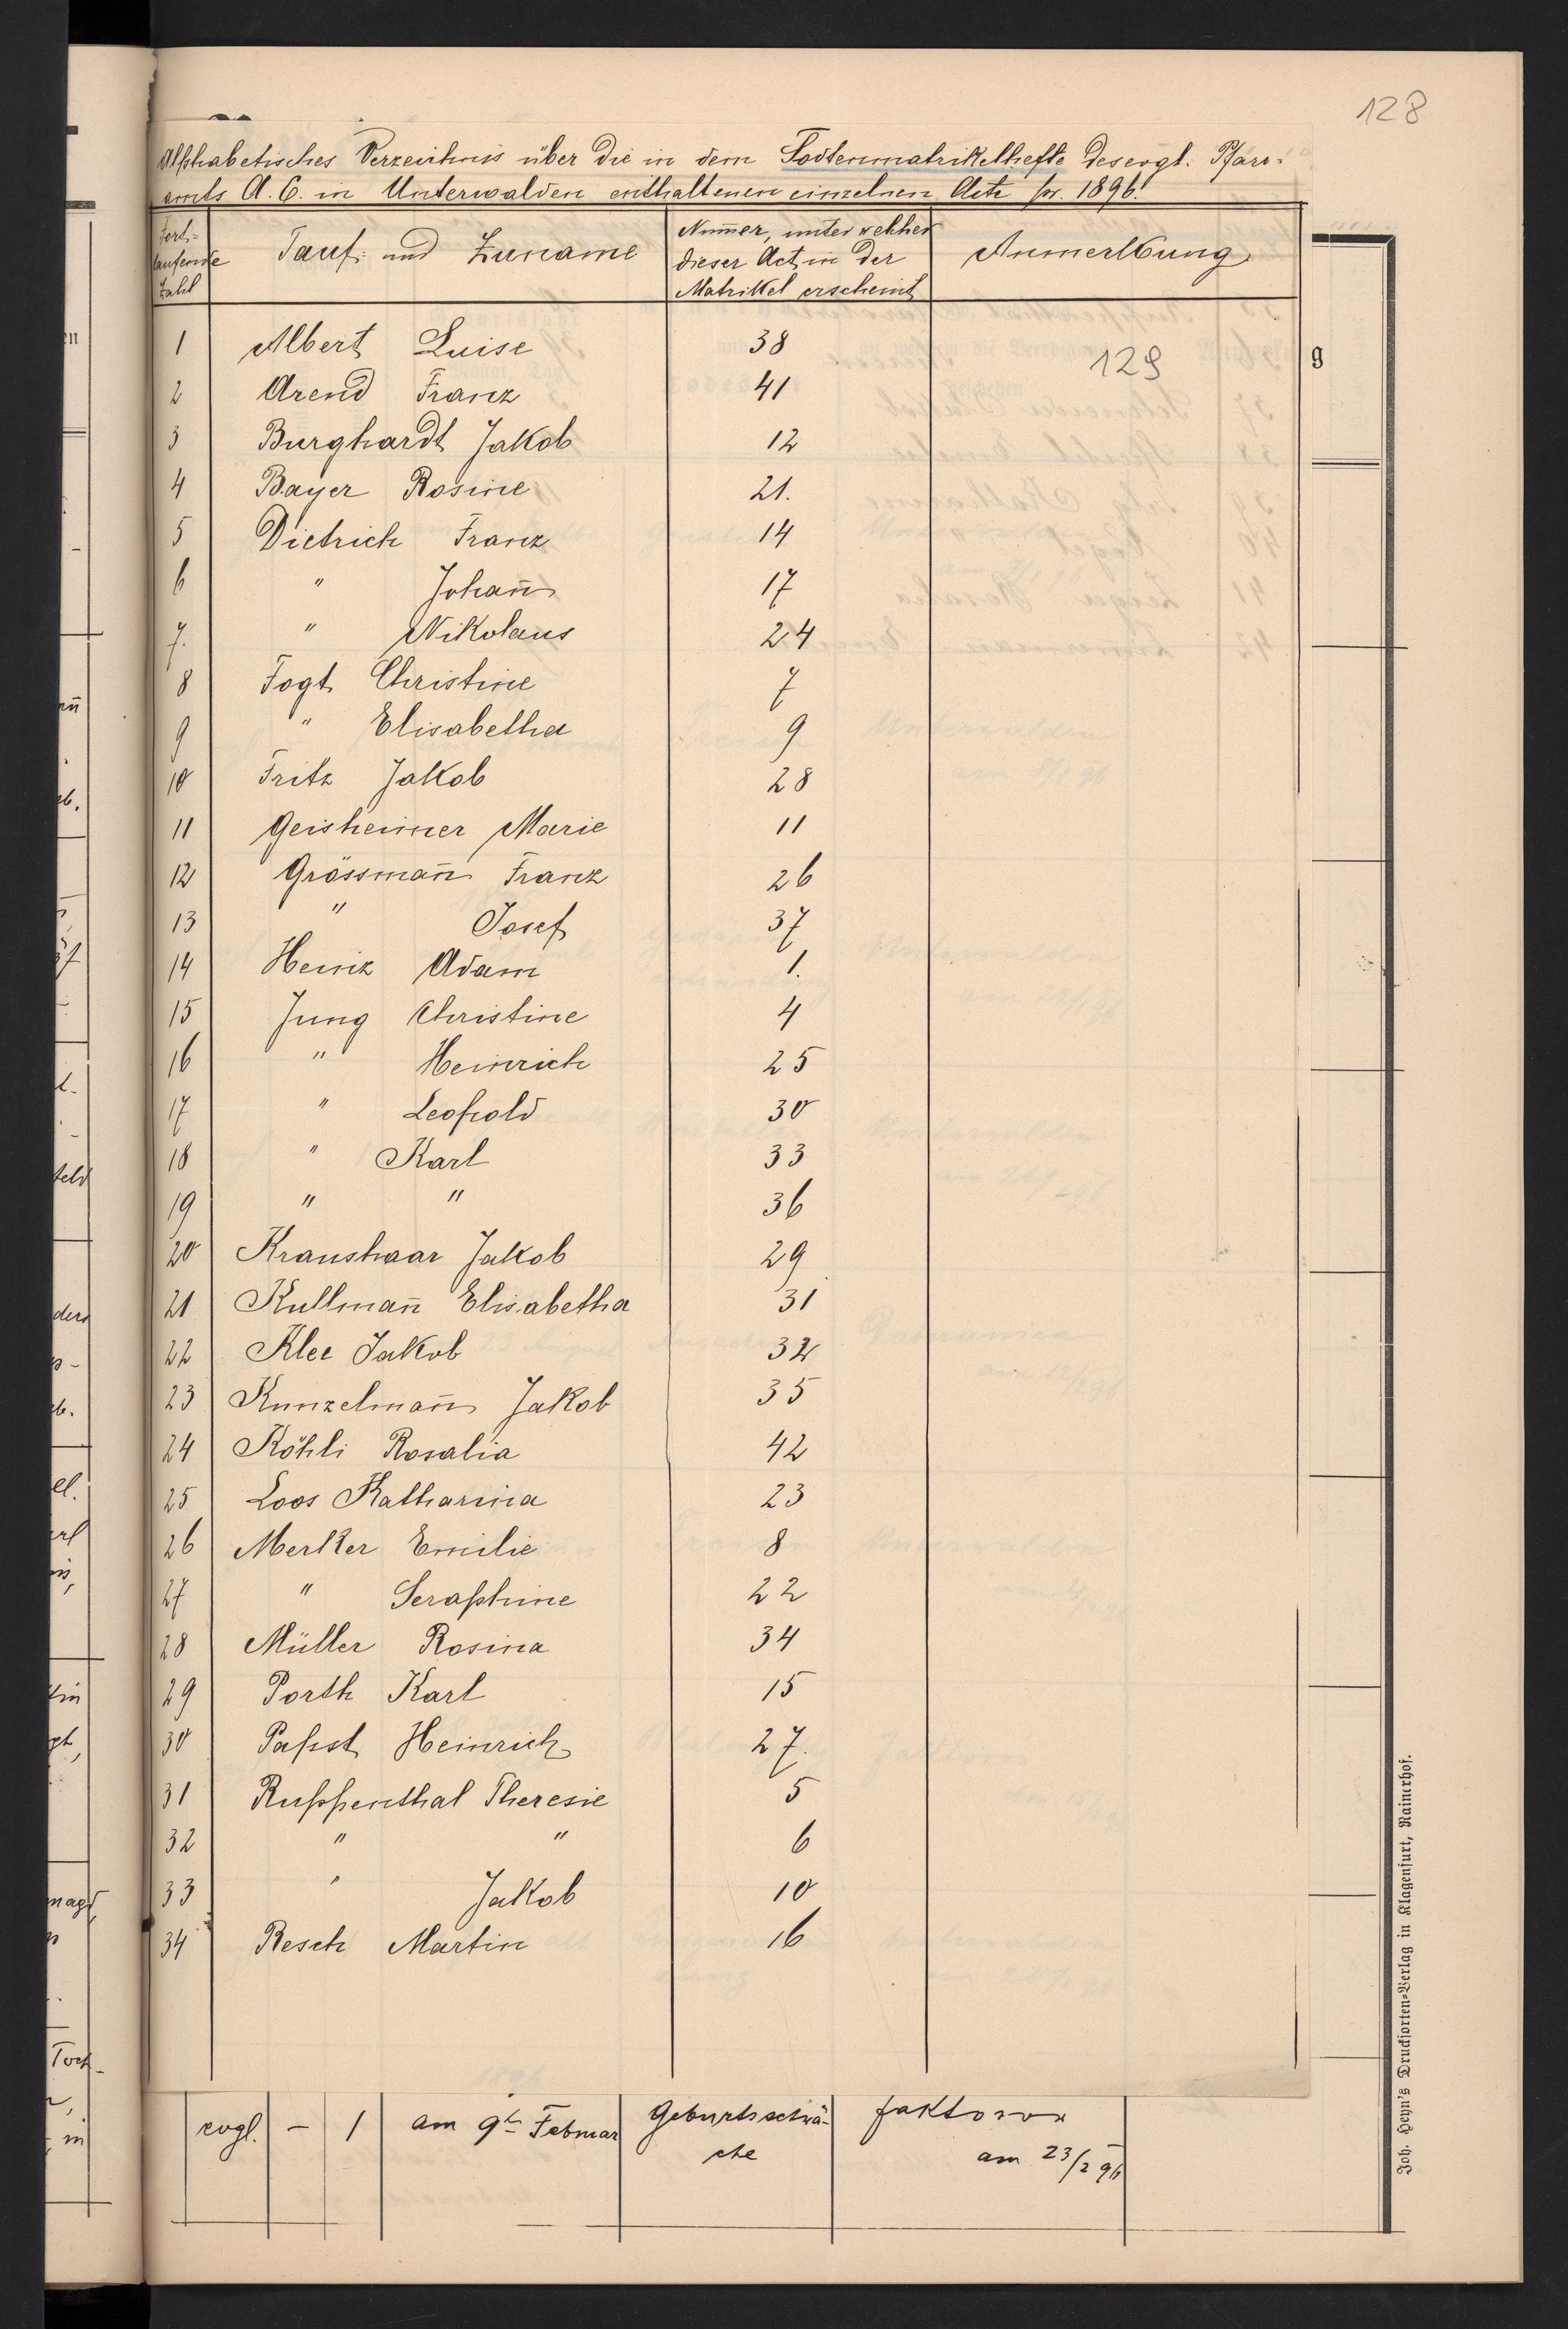 128
Alphabetisches Verzeichnis über die in dem Todtenmatrikelhefte des evgl. Pfarr-
amts A. C. in Unterwalden enthaltenen einzelnen Acte pr. 1896.
Fort-
laufende
Zahl
Tauf- und Zuname
Num̄er, unter welcher
dieser Act in der
Matrikel erscheint
Anmerkung
1 Albert Luise 38
129
9
2 Arend Franz 41
3 Burghardt Jakob 12
4 Bayer Rosine 21.
5 Dietrich Franz 14
6 " Johan̄ 17
7. " Nikolaus 24
8 Fogt Christine 7
9 " Elisabetha 9
10 Fritz Jakob 28
11 Geisheimer Marie 11
12 Grössman̄ Franz 26
13 " Josef 37
14 Heinz Adam 1.
15 Jung Christine 4
16 " Heinrich 25
17 " Leopold 30
18 " Karl 33
19 " " 36
20 Kraushaar Jakob 29
21 Kullman̄ Elisabetha 31
22 Klee Jakob 32
23 Kunzelman̄ Jakob 35
24 Köhli Rosalia 42
25 Loos Katharina 23
26 Merker Emilie 8
27 " Seraphine 22
28 Müller Rosina 34
29 Porth Karl 15
30 Papst Heinrich 27.
31 Ruppenthal Theresie 5
32 " " 6
33 " Jakob 10
34 Resch Martin 16
evgl. – 1 am 9t Februar Geburtsschwä-
che
am 23/2 96
Joh. Heyn's Drucksorten-Verlag in Klagenfurt, Rainerhof.